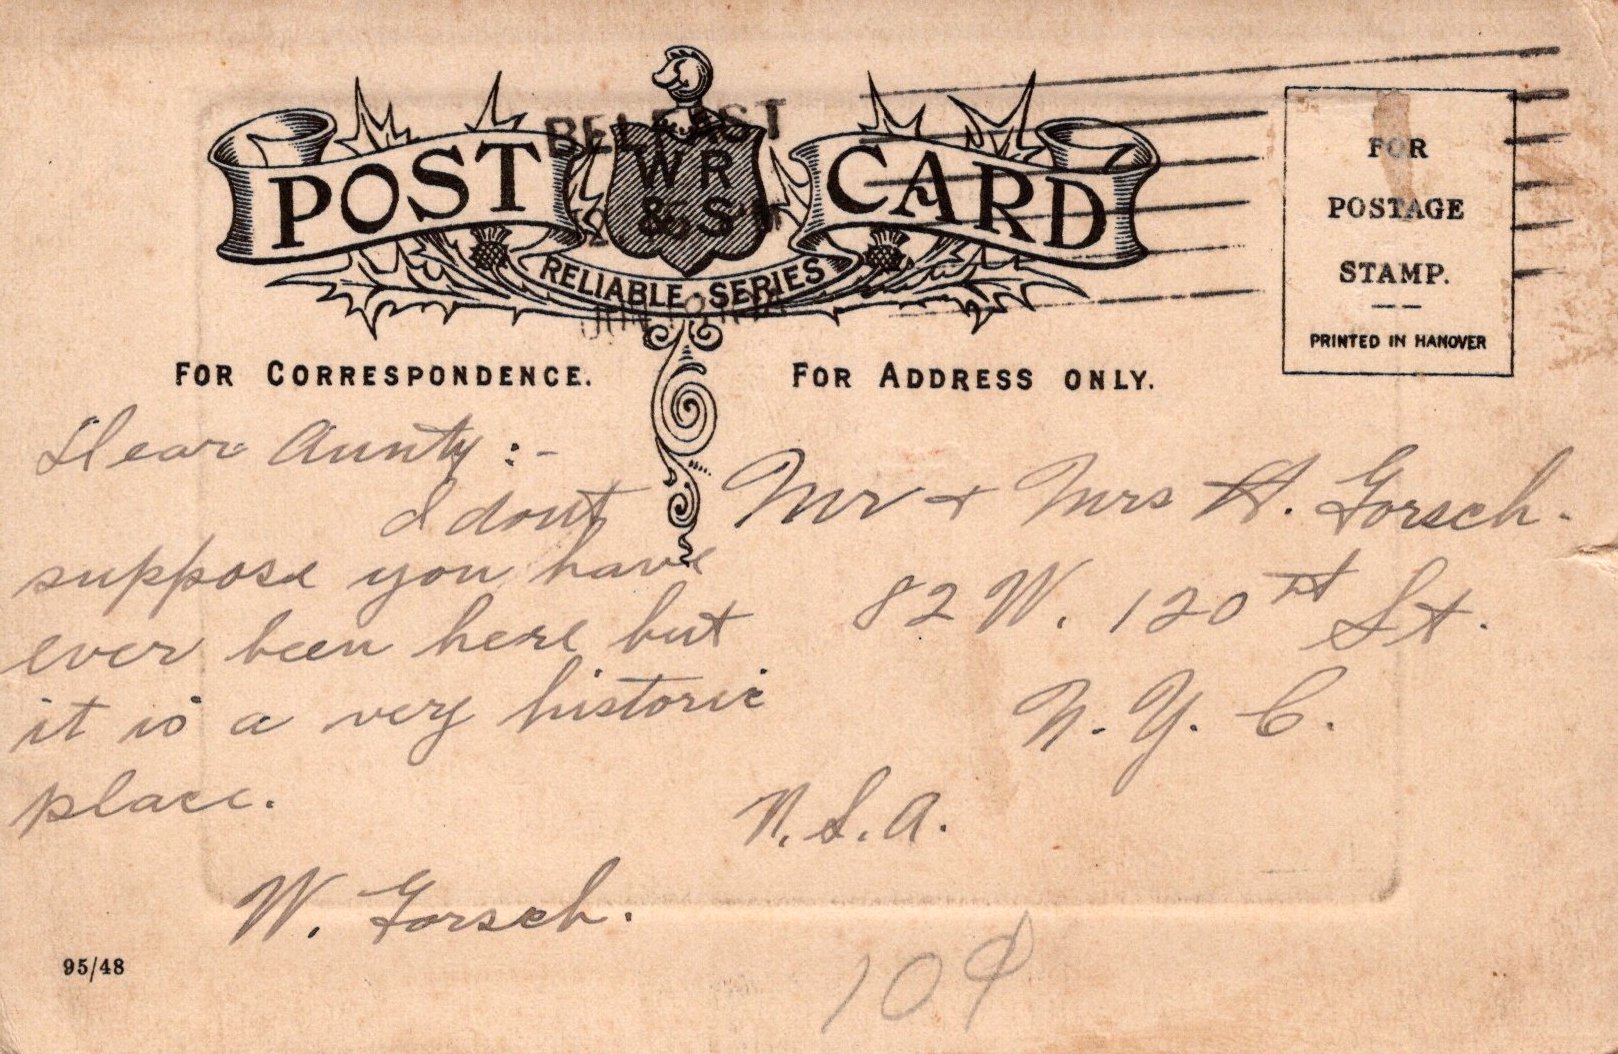 BELFAST
POST CARD
WR
&S
RELIABLE SERIES
FOR
POSTAGE
STAMP.
PRINTED IN HANOVER
FOR CORRESPONDENCE.
FOR ADDRESS ONLY.
Dear Aunty:-
I dont
suppose you have
ever been here but
it is a very historic
place.
W. Gorsch.
Mr + Mrs H. Gorsch.
82 W. 120th St.
N. Y. C.
N.S.A.
95/48
10¢